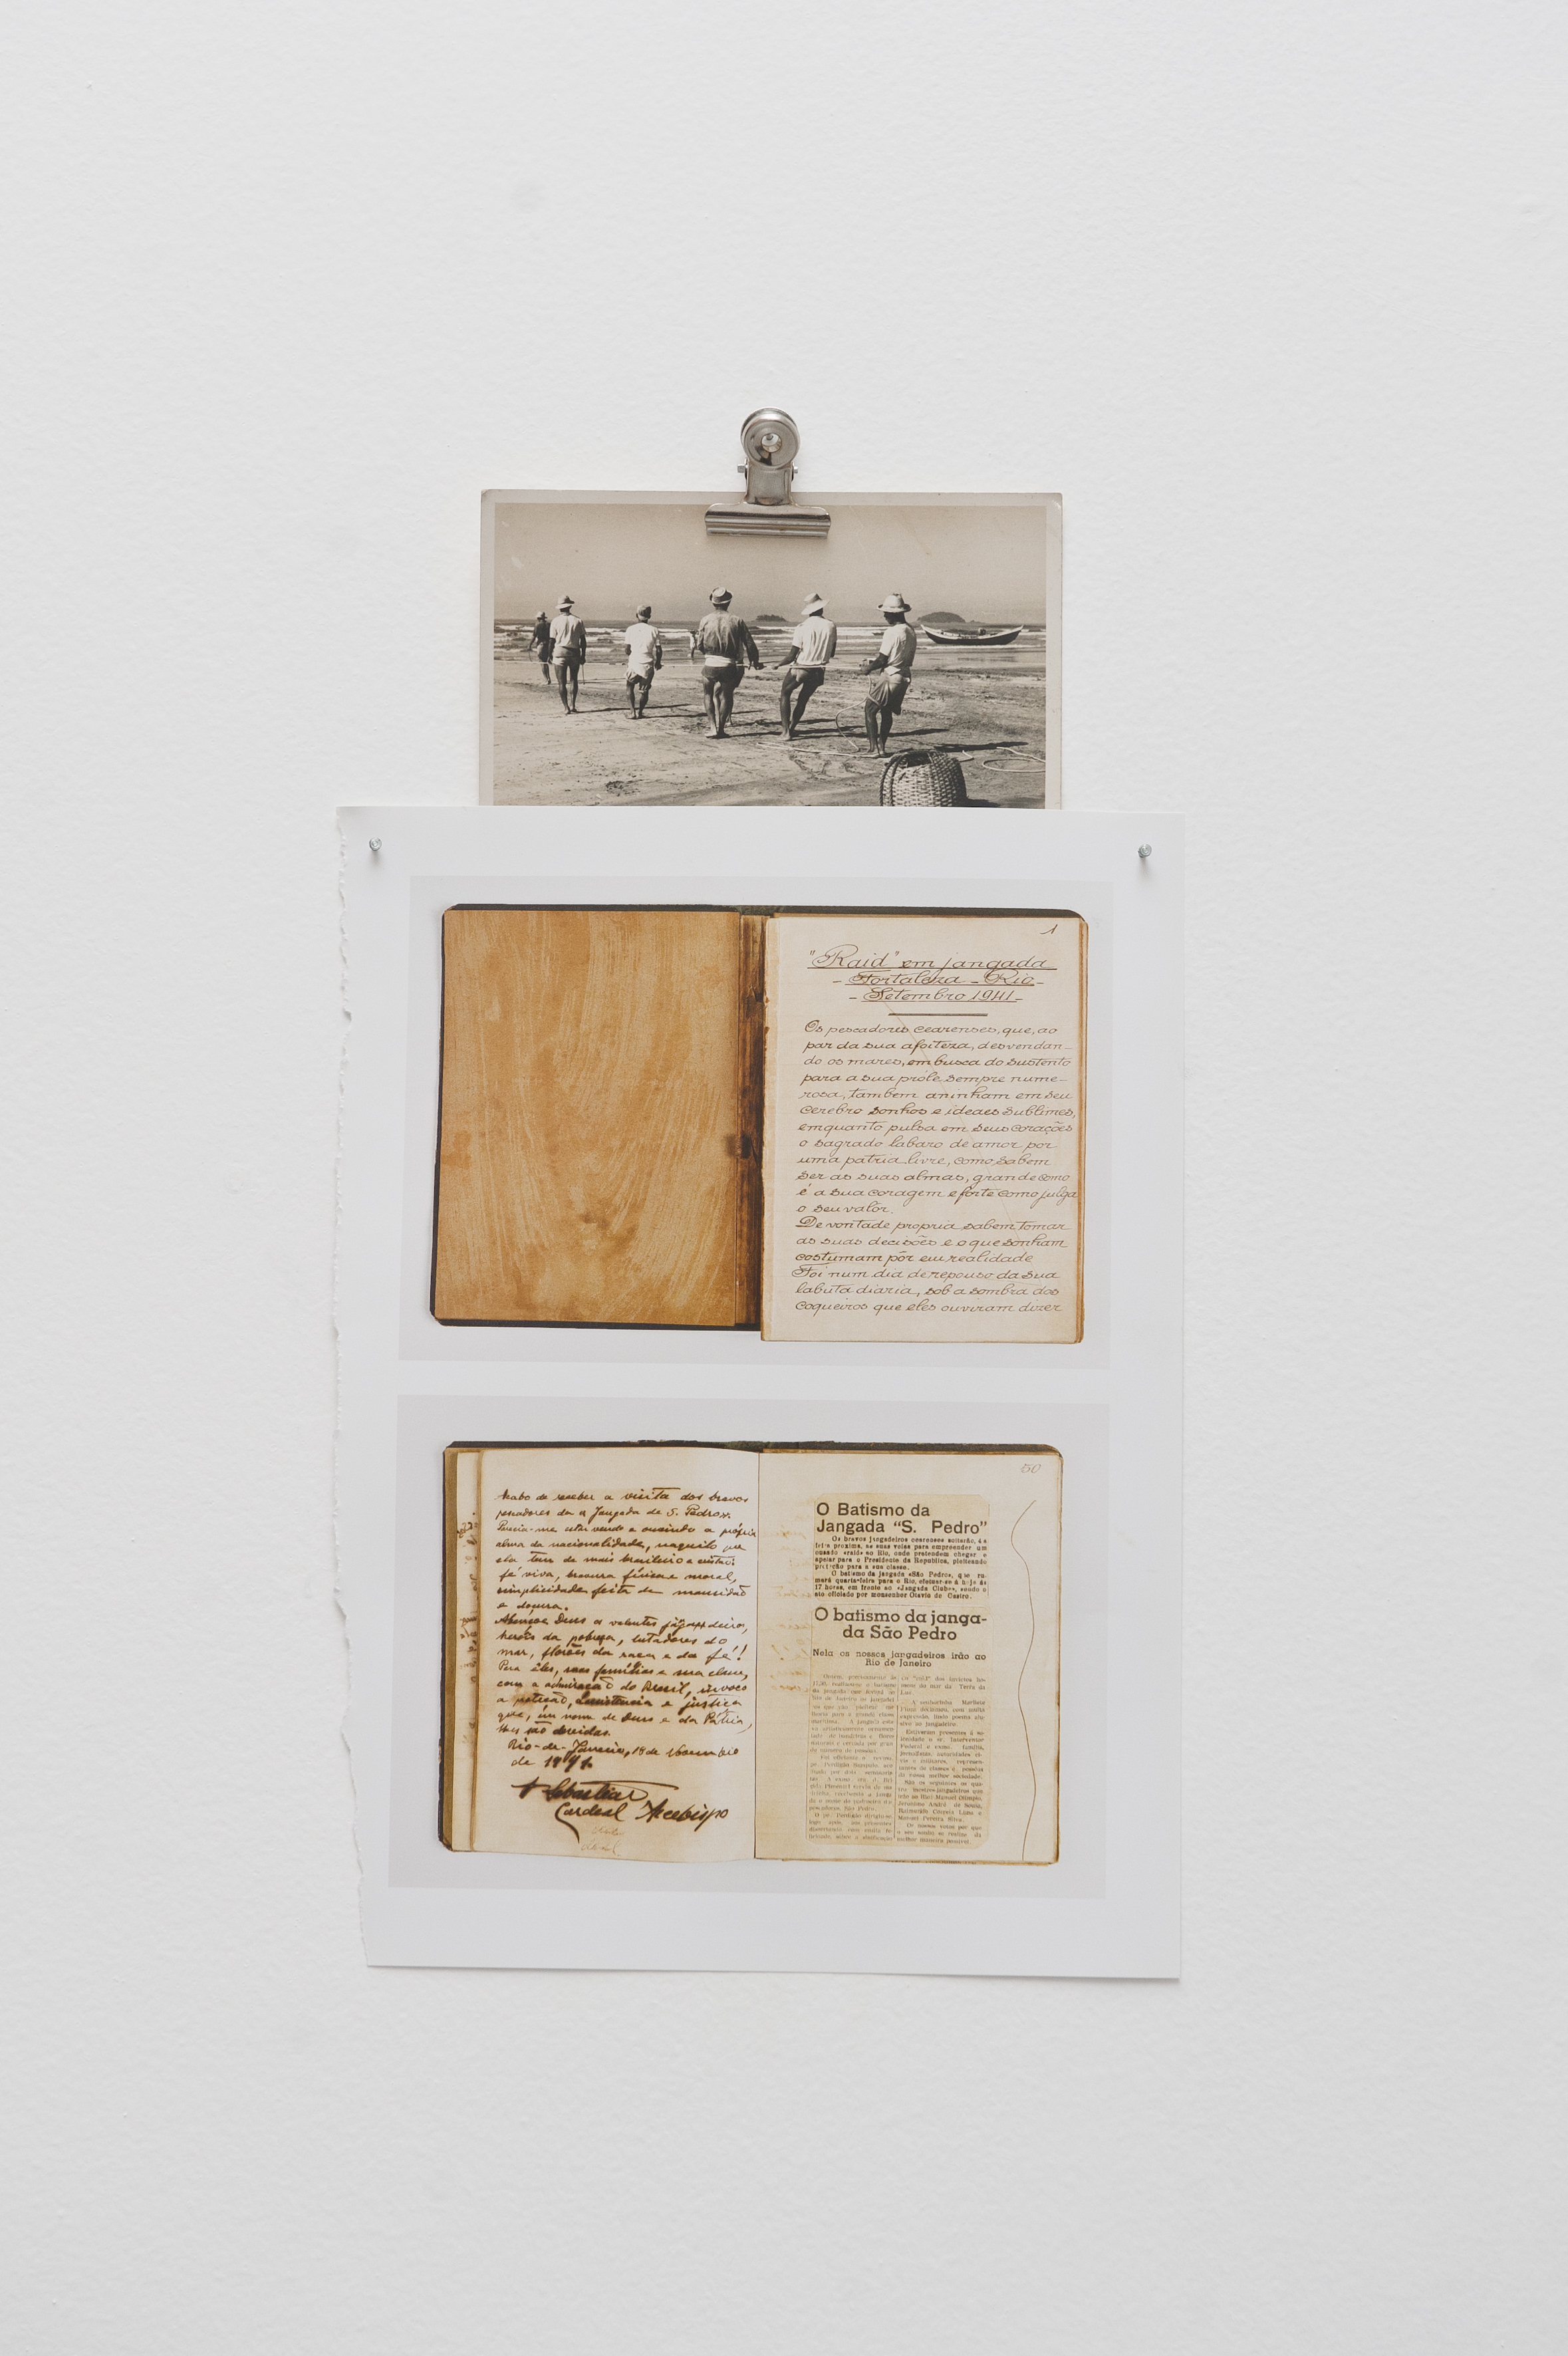 1
"Raid" em jangada
- Fortaleza - Rio -
- Setembro 1941 -
Os pescadores cearenses, que, ao
par da sua afoiteza, desvendan-
do os mares, em busca do sustento
para a sua próle sempre nume-
rosa, tambem aninham em seu
cerebro sonhos e ideaes sublimes,
emquanto pulsa em seus corações
o sagrado labaro de amor por
uma patria livre, como sabem
ser as suas almas, grande como
é a sua coragem e forte como julga
o seu valor.
De vontade propria sabem tomar
as suas decisões e o que sonham
costumam pôr em realidade
Foi num dia de repouso da sua
labuta diaria, sob a sombra dos
coqueiros que eles ouviram dizer
Acabo de receber a visita dos bravos
pescadores da "Jangada de S. Pedro".
Parecia-me estar vendo e ouvindo a própria
alma da nacionalidade, naquilo que
ela tem de mais brasileiro e cristão:
fé viva, bravura física e moral,
simplicidade feita de mansidão
e doçura.
Abençoe Deus os valentes jangadeiros,
heróis da pobreza, lutadores do
mar, florões da raça e da fé!
Para êles, suas famílias e sua classe,
com a admiração do Brasil, invoco
a proteção, assistencia e justiça
que, em nome de Deus e da Pátria,
lhes são devidas.
Rio-de-Janeiro, 18 de Novembro
de 1941.
† Sebastião
Cardeal Arcebispo
50
O Batismo da
Jangada "S. Pedro"
Os bravos jangadeiros cearenses soltarão, 4.a
feira proxima, as suas velas para empreender um
ousado «raid» ao Rio, onde pretendem chegar e
apelar para o Presidente da Republica, pleiteando
proteção para a sua classe.
O batismo da jangada «São Pedro», que ru-
mará quarta-feira para o Rio, efetuar-se á hoje ás
17 horas, em frente ao «Jangada Clube», sendo o
ato oficiado por monsenhor Otavio de Castro.
O batismo da janga-
da São Pedro
Nela os nossos jangadeiros irão ao
Rio de Janeiro